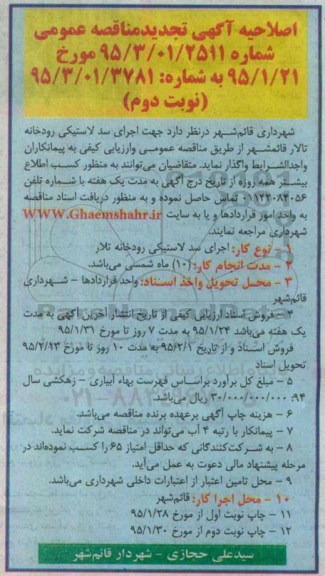 اصلاحیه آگهی تجدیدمناقصه عمومی
شماره ۹۵/۳/۰۱/۲۵۱۱ مورخ
۹۵/۱/۲۱ به شماره: ۹۵/۳/۰۱/۳۷۸۱
(نوبت دوم)
شهرداری قائم‌شهر درنظر دارد جهت اجرای سد لاستیکی رودخانه
تالار قائمشهر از طریق مناقصه عمومی وارزیابی کیفی به پیمانکاران
واجدالشرایط واگذار نماید. متقاضیان می‌توانند به منظور کسب اطلاع
بیشتر همه روزه از تاریخ درج آگهی به مدت یک هفته با شماره تلفن
تماس حاصل نموده و به منظور دریافت اسناد مناقصه
به واحد امور قراردادها و یا به سایت www.Ghaemshahr.ir
شهرداری مراجعه نمایند.
۱ - نوع کار: اجرای سد لاستیکی رودخانه تلار
۲ - مدت انجام کار: (۱۰) ماه شمسی می‌باشد.
۳ - محل تحویل واخذ اسناد: واحد قراردادها - شهرداری
قائم‌شهر
۴ - فروش اسناد ارزیابی کیفی از تاریخ انتشار آخرین آگهی به مدت
یک هفته می‌باشد ۹۵/۱/۲۴ به مدت ۷ روز تا مورخ ۹۵/۱/۳۱
فروش اسناد و از تاریخ ۹۵/۲/۱ به مدت ۱۰ روز تا مورخ
تحویل اسناد
۵ - مبلغ کل برآورد براساس فهرست بهاء آبیاری - زهکشی سال
۹۴: ۳۰/۰۰۰/۰۰۰/۰۰۰ ریال می‌باشد.
۶ - هزینه چاپ آگهی برعهده برنده مناقصه می‌باشد.
۷ - پیمانکار با رتبه ۴ آب می‌تواند در مناقصه شرکت نماید.
۸ - به شرکت‌کنندگانی که حداقل امتیاز ۶۵ را کسب نموده‌اند در
مرحله پیشنهاد مالی دعوت به عمل می‌آید.
۹ - محل تامین اعتبار از اعتبارات داخلی شهرداری می‌باشد.
۱۰ - محل اجرا کار: قائم‌شهر
۱۱ - چاپ نوبت اول از مورخ ۹۵/۱/۲۸
۱۲ - چاپ نوبت دوم از مورخ ۹۵/۱/۳۰
سیدعلی حجازی - شهردار قائم‌شهر